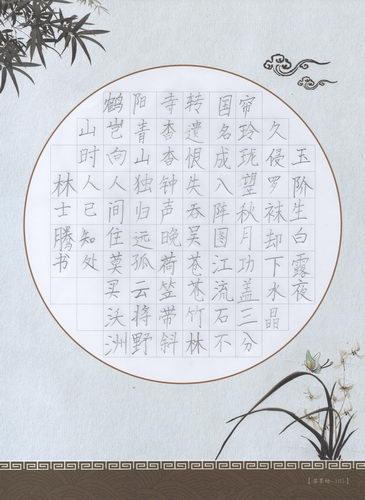 玉阶生白露夜
久侵罗袜却下水晶
帘玲珑望秋月功盖三分
国名成八阵图江流石不
转遗恨失吞吴苍苍竹林
寺杳杳钟声晚荷笠带斜
阳青山独归远孤云将野
鹤岂向人间住莫买沃洲
山时人已知处
林士腾书